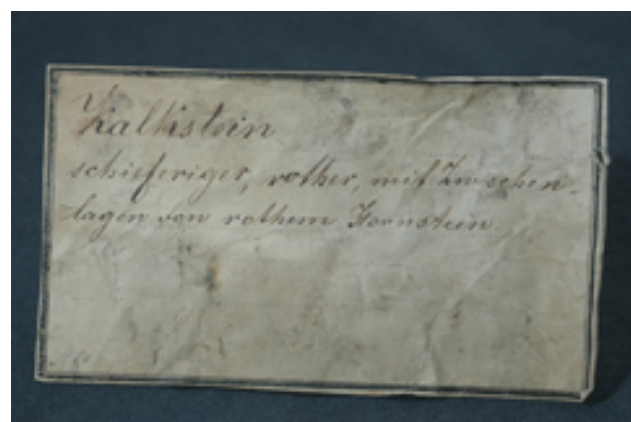 Kalkstein
schieferiger, rother, mit Zwischen-
lagen von rothem Hornstein.